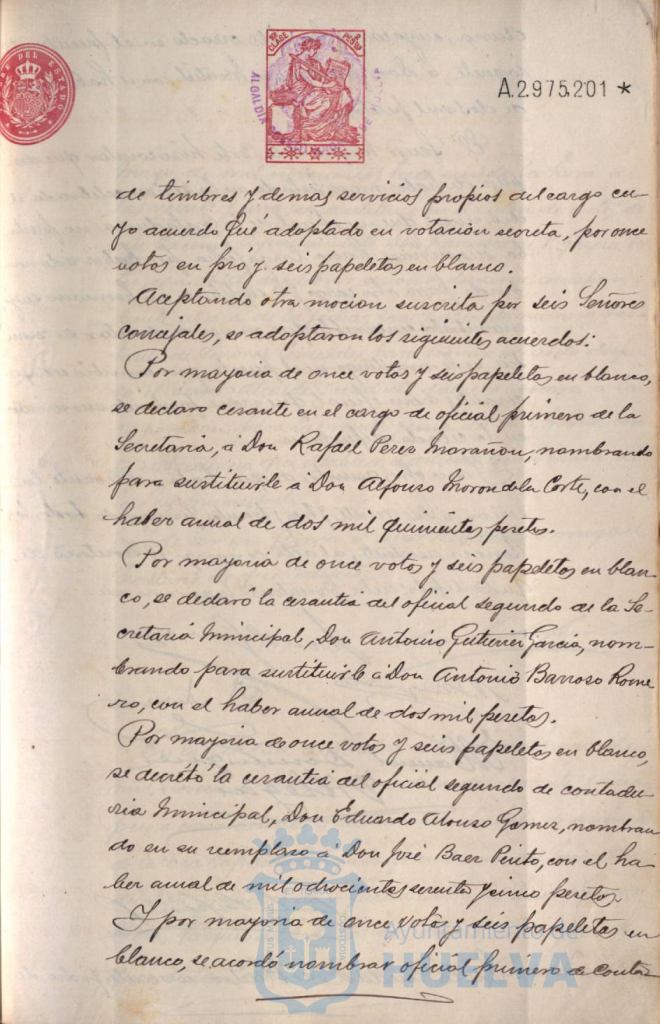 DEL ESTADO
12ª CLASE
ALCALDIA
A.2.975.201 *
de timbres y demas servicios propios del cargo cu-
yo acuerdo fué adoptado en votación secreta, por once
votos en pró y seis papeletas en blanco.
Aceptando otra mocion suscrita por seis Señores
concejales, se adoptaron los siguientes acuerdos:
Por mayoria de once votos y seis papeletas en blanco,
se declaro cesante en el cargo de oficial primero de la
Secretaria, á Don Rafael Perez Marañon, nombrando
para sustituirle á Don Alfonso Moron de la Corte, con el
haber anual de dos mil quinientas pesetas.
Por mayoria de once votos y seis papeletas en blan-
co, se declaró la cesantia del oficial segundo de la Se-
cretaria Municipal, Don Antonio Gutierrez Garcia, nom-
brando para sustituirle á Don Antonio Barroso Rome-
ro, con el haber anual de dos mil pesetas.
Por mayoria de once votos y seis papeletas en blanco,
se decretó la cesantia del oficial segundo de contadu-
ria Municipal, Don Eduardo Alonso Gomez, nombran
do en su remplazo á Don José Baez Pinto, con el ha-
ber anual de mil ochocientas setenta y cinco pesetas.
Y por mayoria de once votos y seis papeletas en
blanco, se acordó nombrar oficial primero de conta-
Ayuntamiento de
HUELVA